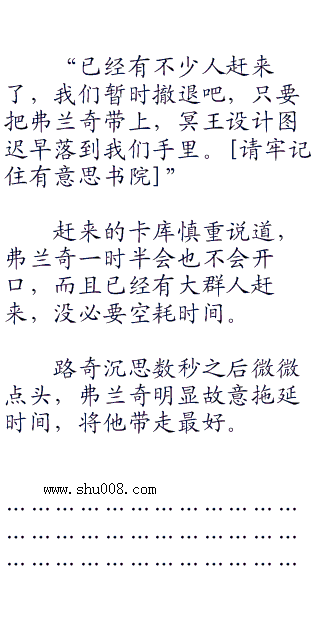 “已经有不少人赶来
了，我们暂时撤退吧，只要
把弗兰奇带上，冥王设计图
迟早落到我们手里。[请牢记
住有意思书院]”
赶来的卡库慎重说道，
弗兰奇一时半会也不会开
口，而且已经有大群人赶
来，没必要空耗时间。
路奇沉思数秒之后微微
点头，弗兰奇明显故意拖延
时间，将他带走最好。
www.shu008.com
…………………………………
…………………………………
…………………………………